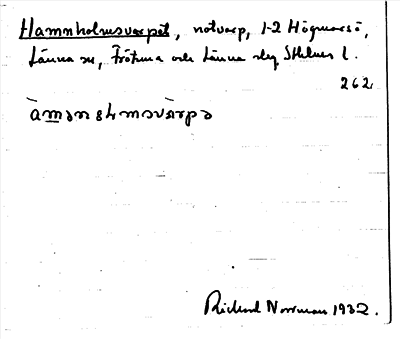 Hamnholmsvarpet, notvarp, 1-2 Högmarsö,
Länna sn, Frötuna och Länna slg Sthlms l.
262
Rickard Norrman 1932.